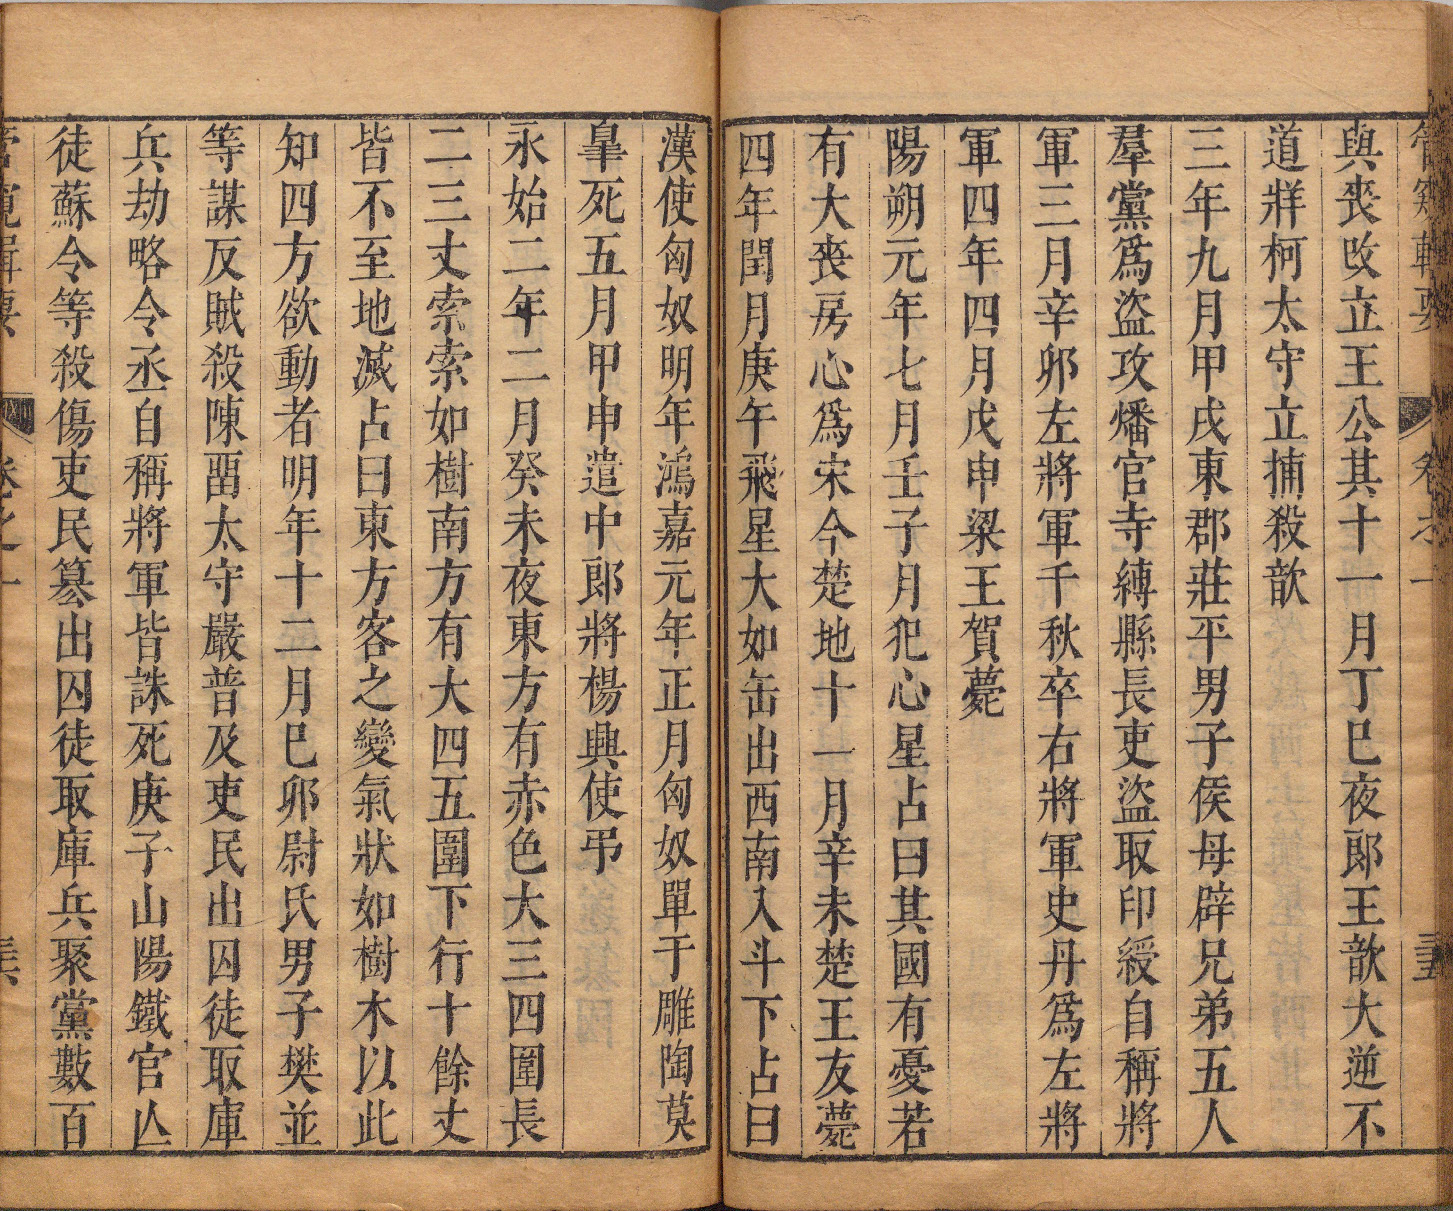 管窺輯要 卷之一 三五
與喪改立王公其十一月丁巳夜郎王歆大逆不
道牂柯太守立捕殺歆
三年九月甲戌東郡莊平男子侯母辟兄弟五人
羣黨爲盜攻燔官寺縛縣長吏盜取印綬自稱將
軍三月辛卯左將軍千秋卒右將軍史丹爲左將
軍四年四月戊申梁王賀薨
陽朔元年七月壬子月犯心星占曰其國有憂若
有大喪房心爲宋今楚地十一月辛未楚王友薨
四年閏月庚午飛星大如缶出西南入斗下占曰
漢使匈奴明年鴻嘉元年正月匈奴單于雕陶莫
皐死五月甲申遣中郎將楊興使弔
永始二年二月癸未夜東方有赤色大三四圍長
二三丈索索如樹南方有大四五圍下行十餘丈
皆不至地滅占曰東方客之變氣狀如樹木以此
知四方欲動者明年十二月巳卯尉氏男子樊並
等謀反賊殺陳留太守嚴普及吏民出囚徒取庫
兵劫略令丞自稱將軍皆誅死庚子山陽鐵官亾
徒蘇令等殺傷吏民篡出囚徒取庫兵聚黨數百
卷之一